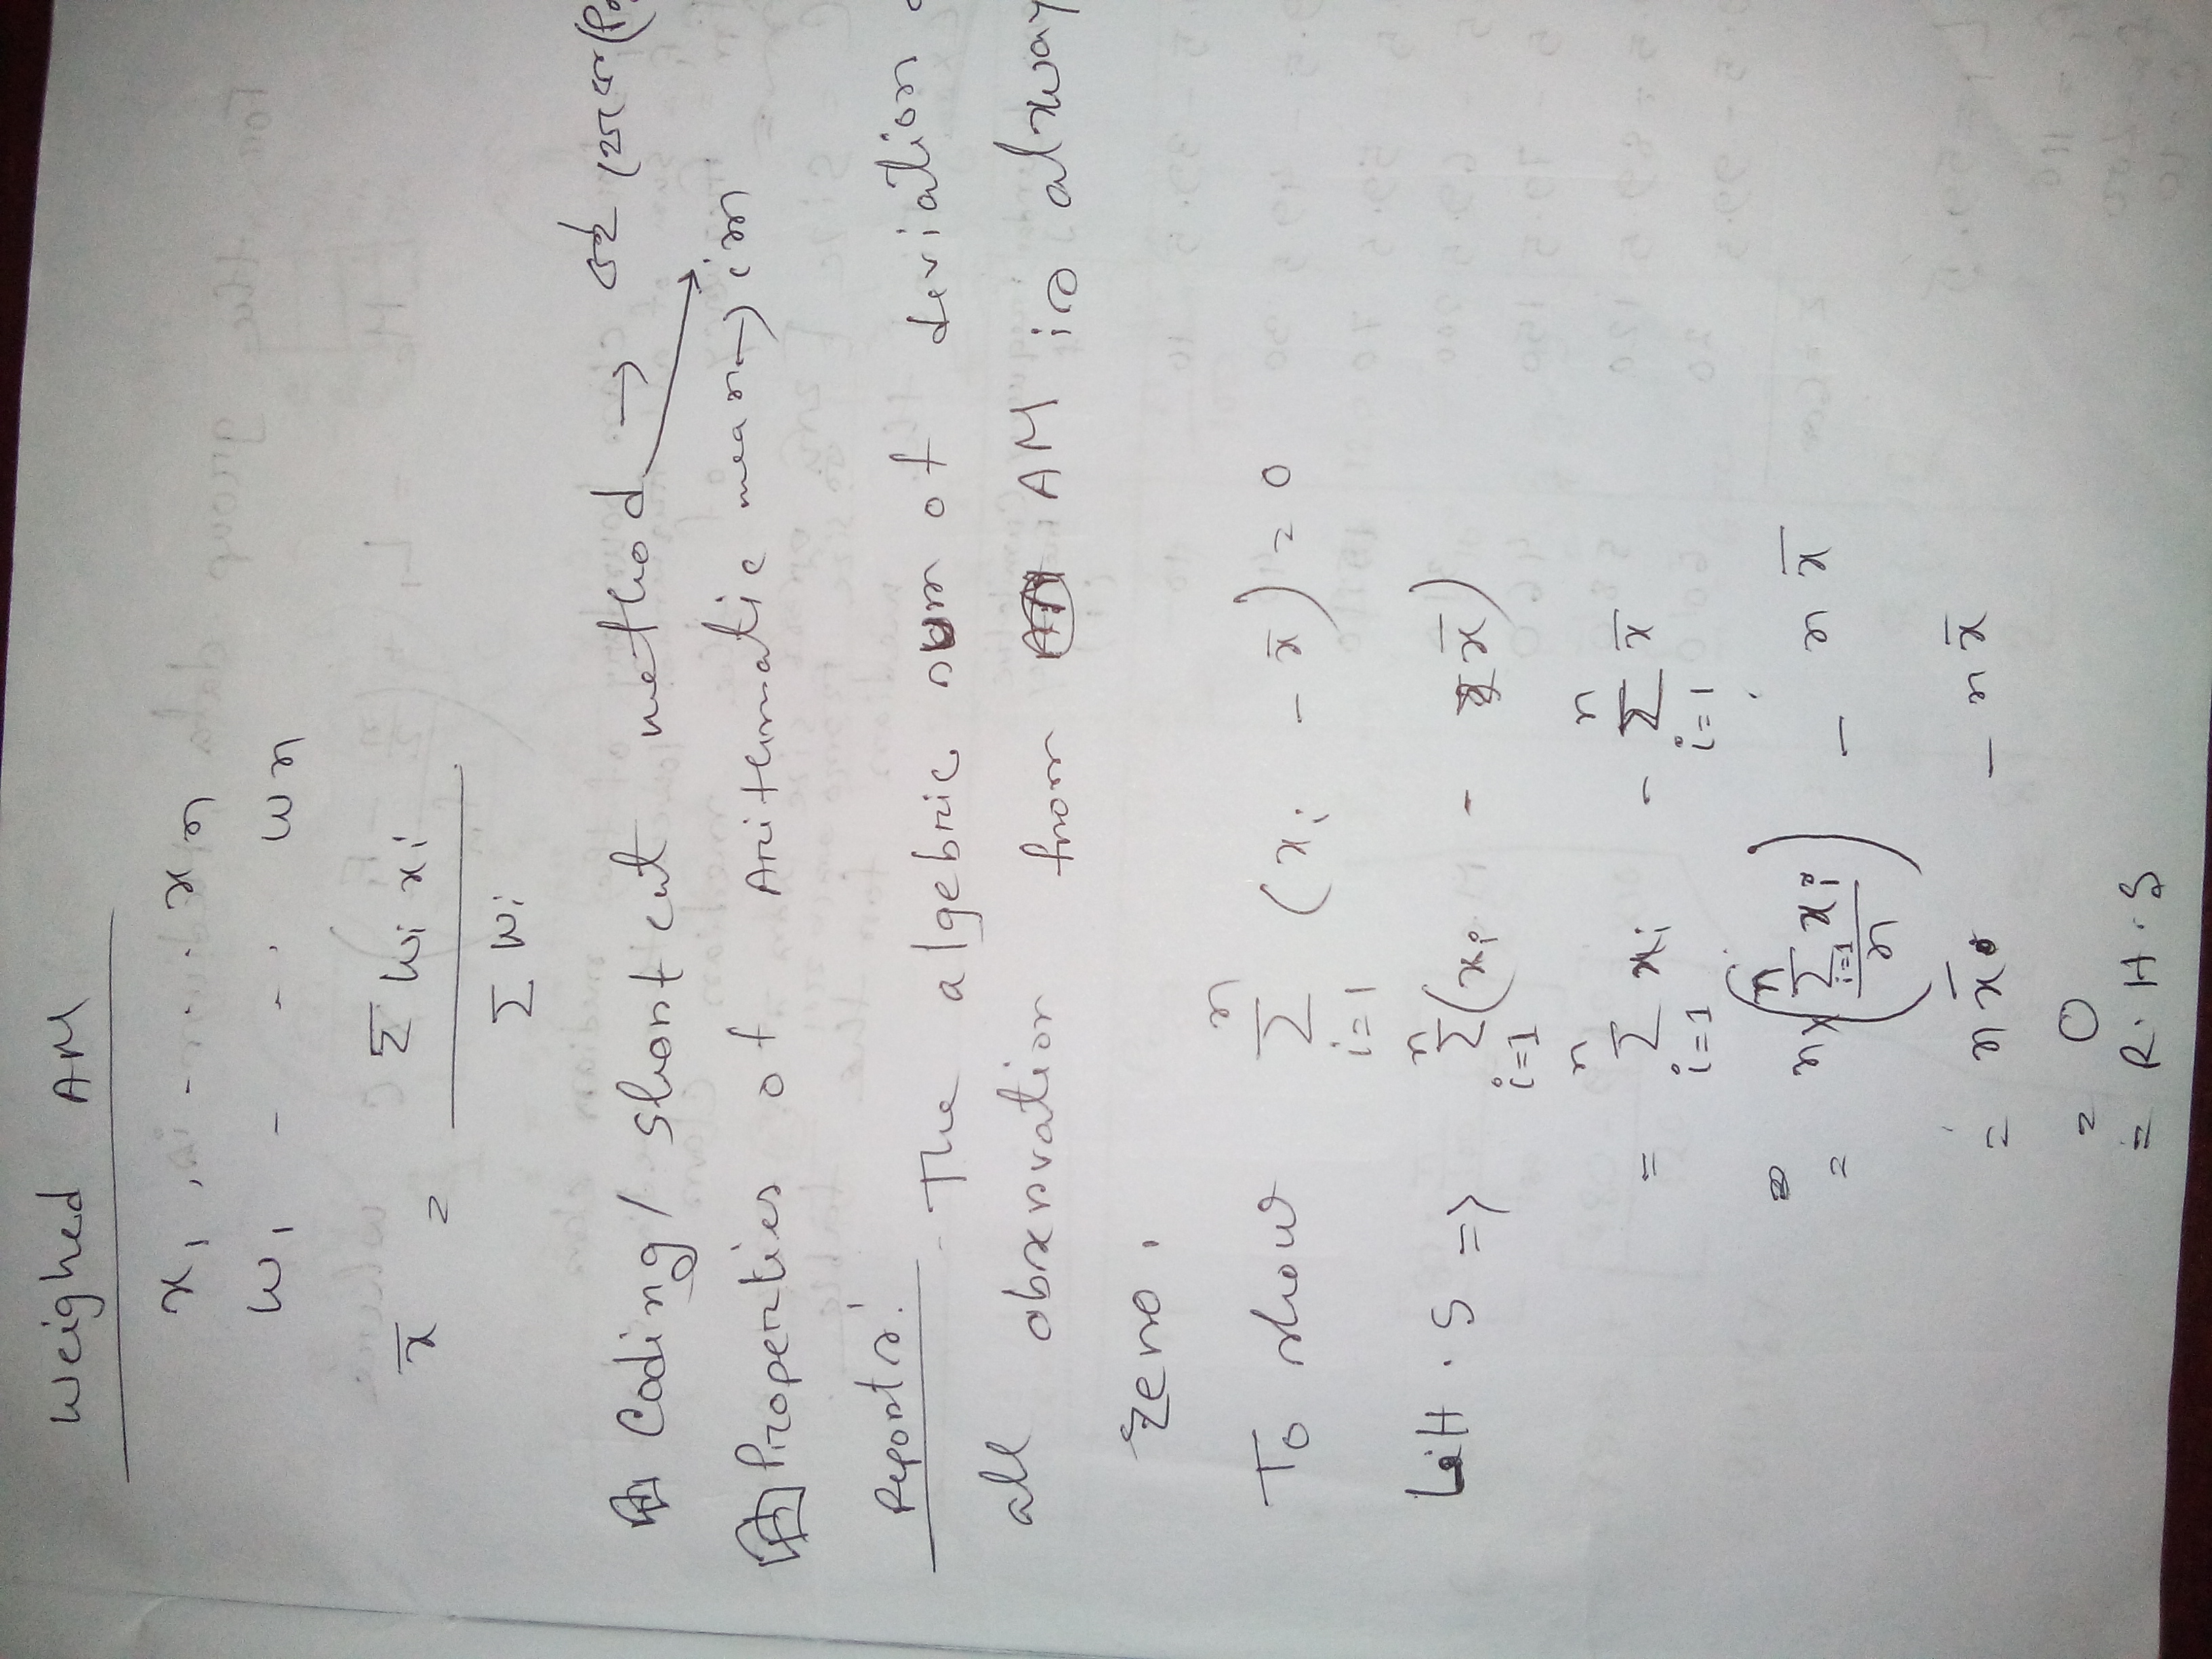 Weighed AM
x₁, - - . xn
w₁ - - . wn
x̄ = Σ wi xi / Σ wi
Coding / Short cut method →
Properties of Arithmatic mean → in
- The algebric sum of deviation
all observation from AM is alway
zero.
To show n Σ i=1 (xi - x̄) = 0
L.H.S => n Σ i=1 (xi - x̄)
= n Σ i=1 xi - n Σ i=1 x̄
= n × (n Σ i=1 xi / n) - n x̄
= n x̄ - n x̄
= 0
= R.H.S